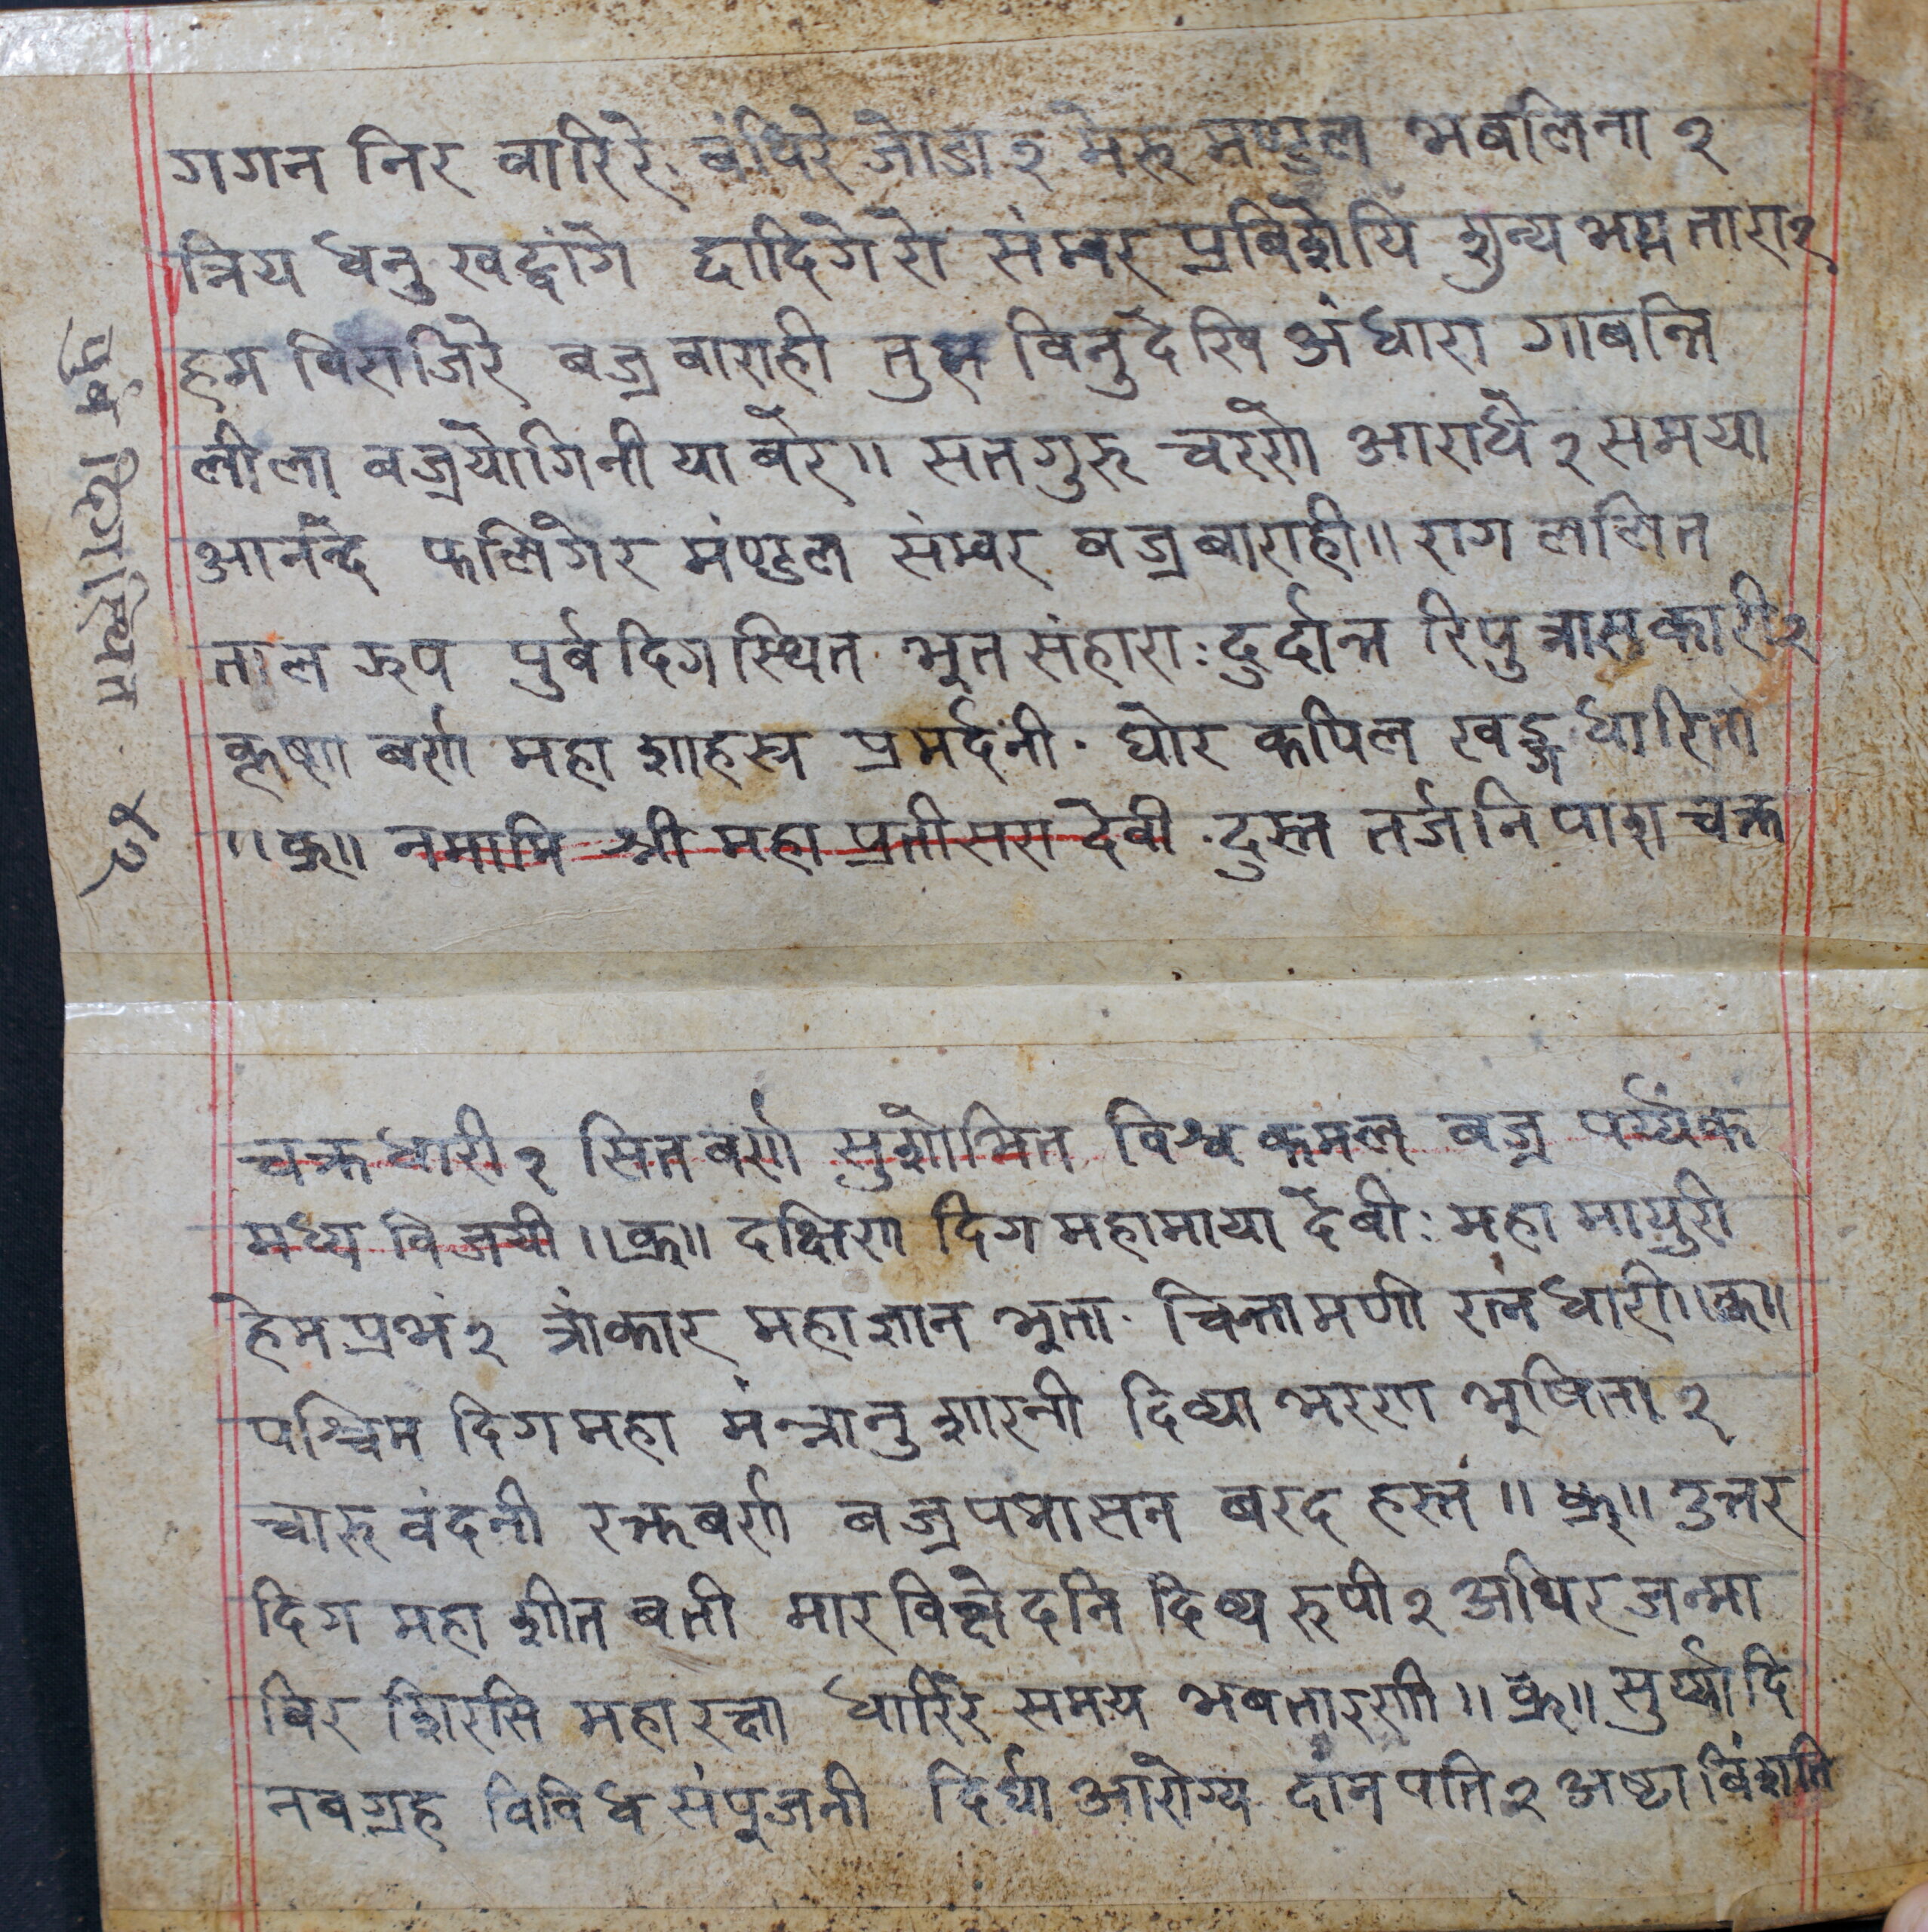 गगन निर वारिरे बंपिरे जोडा २ मेरु मण्डल भबलिना २
त्रिय धनु खट्वांगे द्वादिगेरो संम्वर प्रबिशेयि शुन्य भय्न तारा २
हम विराजिरे बज्र वाराही तुह्म विनु देखि अंधारा गाबन्ति
लीला वज्रयोगिनी या बेर॥ सतगुरु चरणे आराधे २ समया
आनन्दे फलिगेर मंण्डल संम्वर बज्रबाराही॥ राग ललित
ताल झप पुर्ब दिग स्थित भूत संहारा: दुर्दान्त रिपु त्रास कारी २
कृष्ण बर्ण महा शाहस्त्र प्रमर्दनी घोर कपिल खड्ग धारिता
॥क्रु॥ नमामि श्री महा प्रतीसरा देवी दुस्त तर्जनि पाश चक्र
पुर्व दिगस्थित
चक्र धारी २ सित वर्ण सुशोभित विश्व कमल बज्र पर्य्यंक
मध्य विजयी॥क्रु॥ दक्षिण दिग महामाया देबी: महा मायुरी
हेम प्रभं २ त्रांकार महाज्ञान भुता चिन्तामणी रत्न धारी॥क्रु॥
पश्चिम दिग महा मंन्त्रानु शारनी दिव्या भरण भुषिता २
चारु वंदनी रक्त बर्ण बज्र पद्मासन बरद हस्तं॥क्रु॥ उत्तर
दिग महा शीत बती मार विछेदनि दिव्य रुपी २ अथिर जन्मा
बिर शिरसि महा रक्षा धारिरे समय भवतारणी॥क्रु॥ सुर्य्यादि
नब ग्रह विविध संपुजनी दिर्घा आरोग्य दांन पति २ अष्टा बिंशति